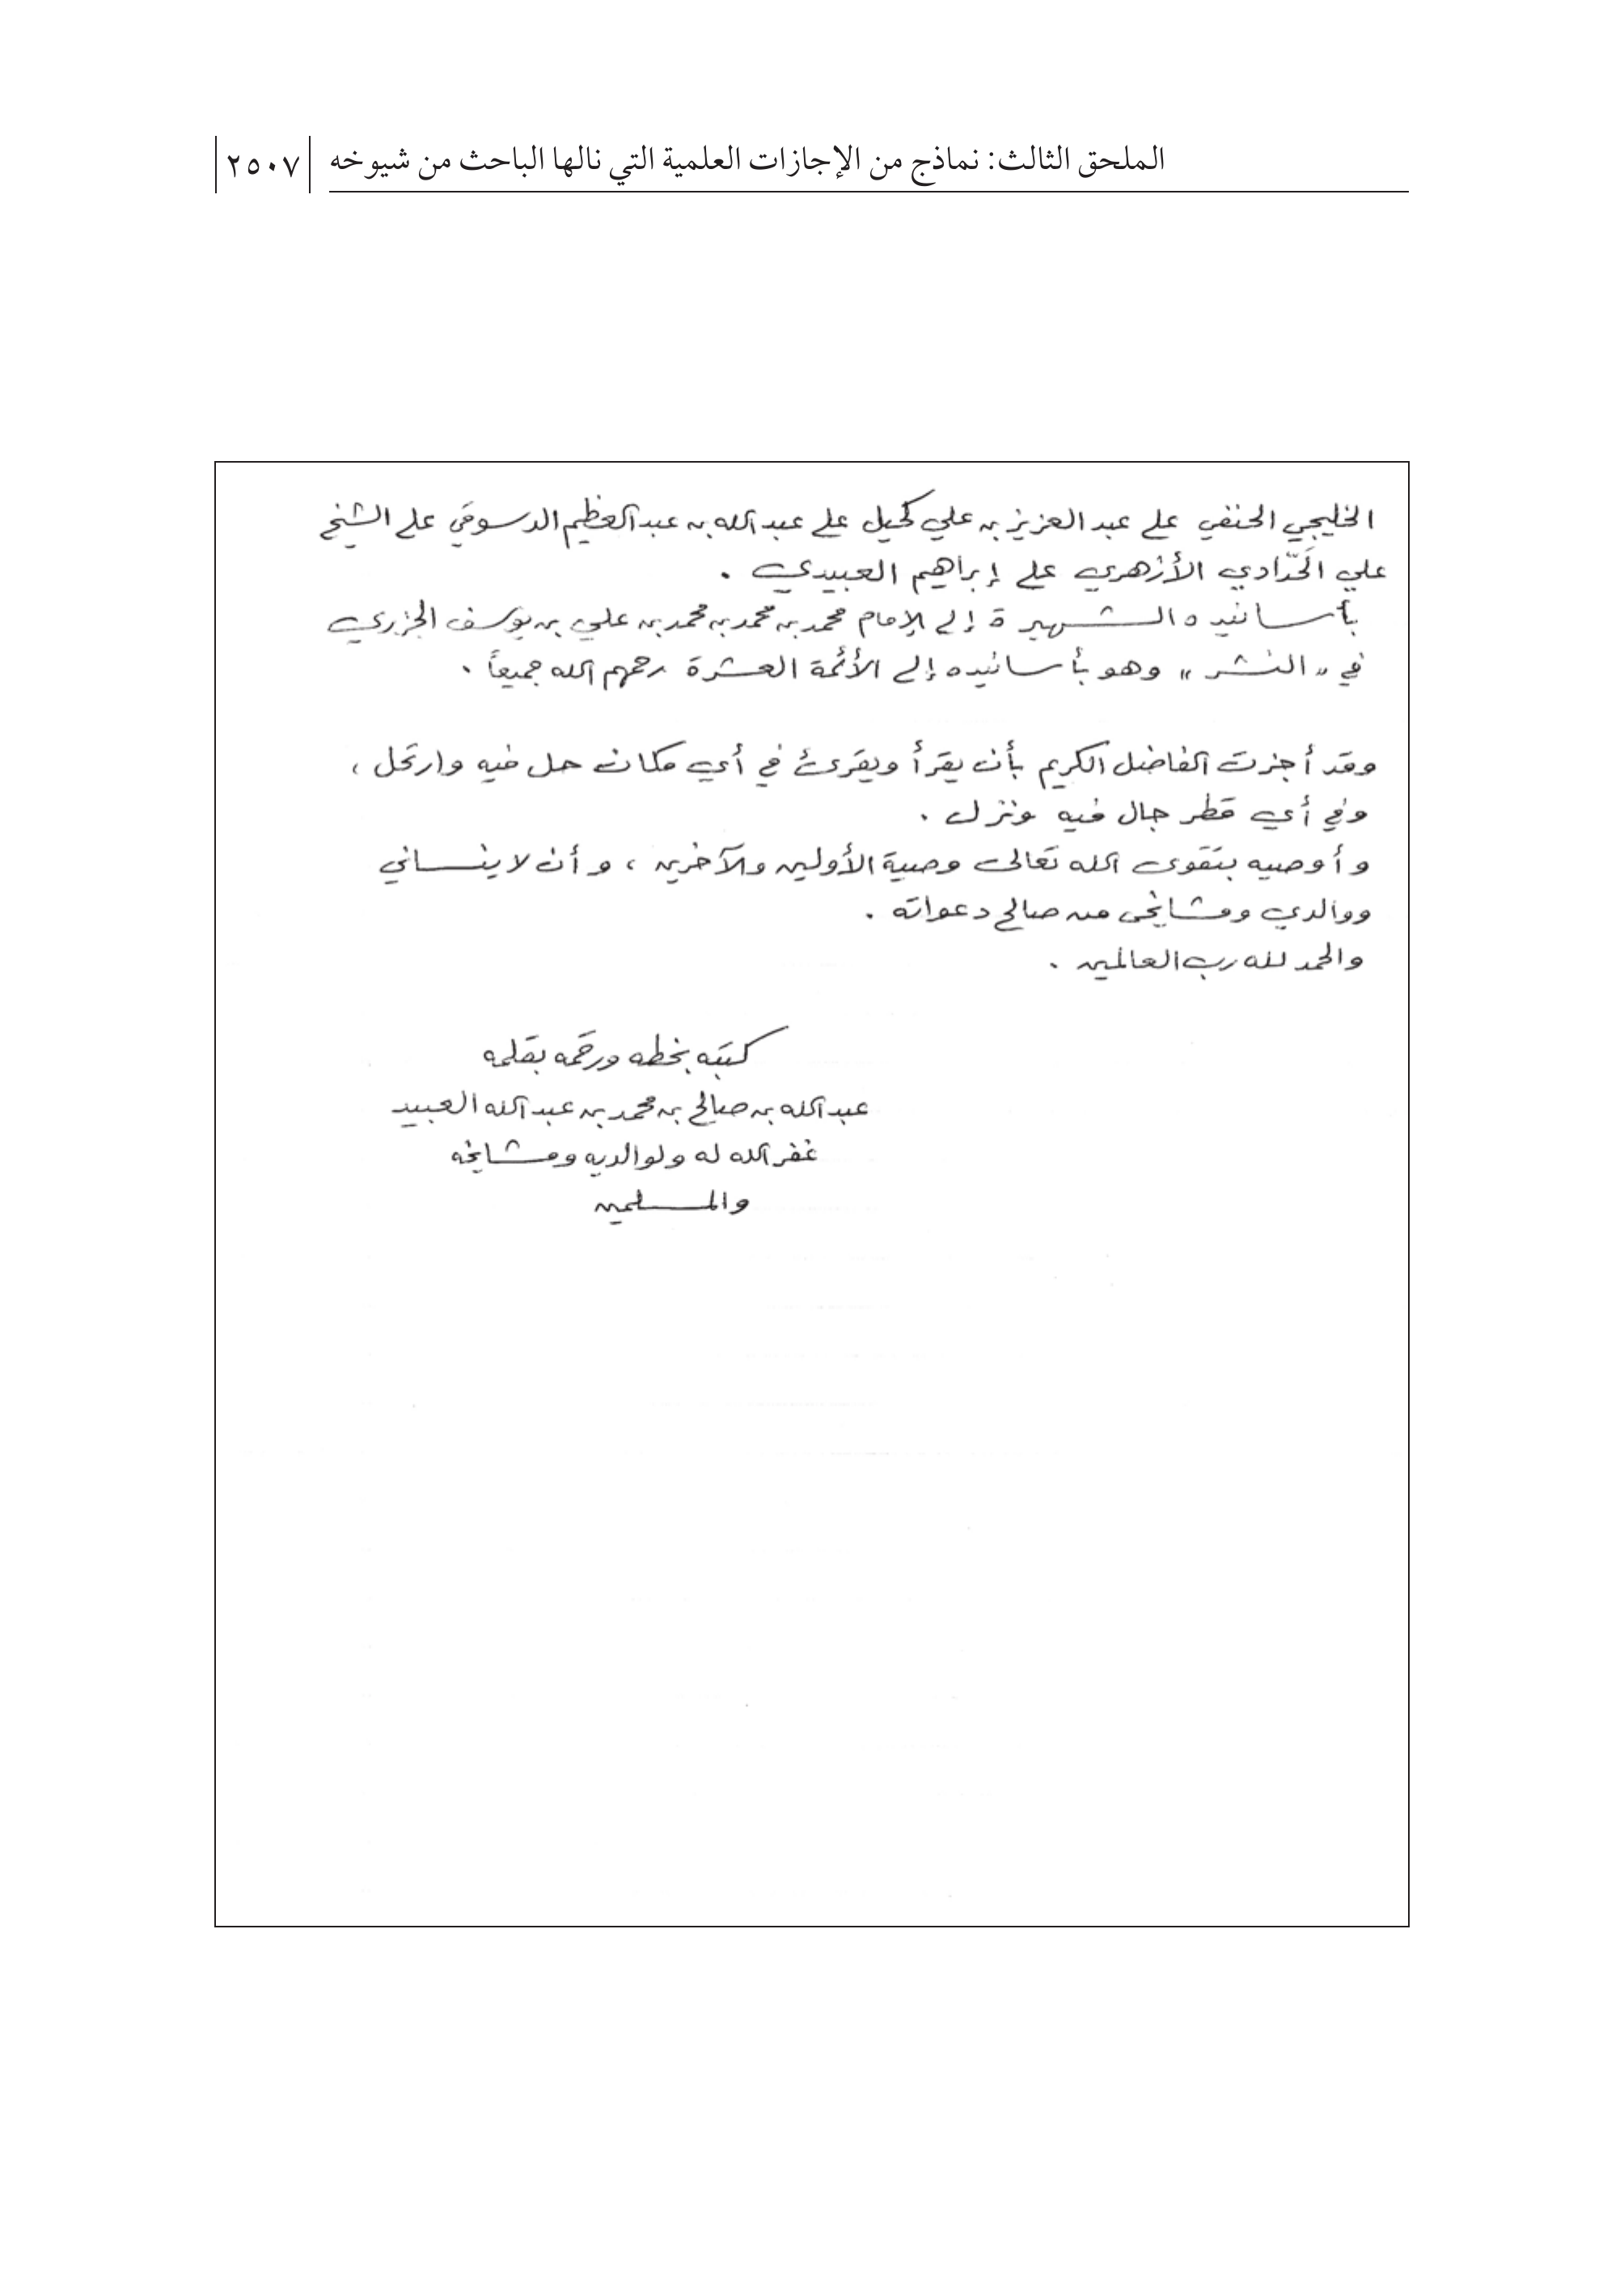 الملحق الثالث: نماذج من الإجازات العلمية التي نالها الباحث من شيوخه ٢٥٠٧
الخليجي الحنفي على عبد العزيز بن علي كحيل على عبد الله بن عبد العظيم الدسوقي على الشيخ
علي الحَدّادي الأزهري على إبراهيم العبيدي .
بأسانيده الشهيرة إلى الإمام محمد بن محمد بن محمد بن علي بن يوسف الجزري
في "النشر" وهو بأسانيده إلى الأئمة العشرة رحمهم الله جميعاً .
وقد أجزت الفاضل الكريم بأن يقرأ ويقرئ في أي مكان حل فيه وارتحل ،
وفي أي قطر جال فيه ونزل .
وأوصيه بتقوى الله تعالى وصية الأولين والآخرين ، وأن لا ينساني
ووالدي ومشايخي من صالح دعواته .
والحمد لله رب العالمين .
كتبه بخطه ورقمه بقلمه
عبد الله بن صالح بن محمد بن عبد الله العبيد
غفر الله له ولوالديه ومشايخه
والمسلمين